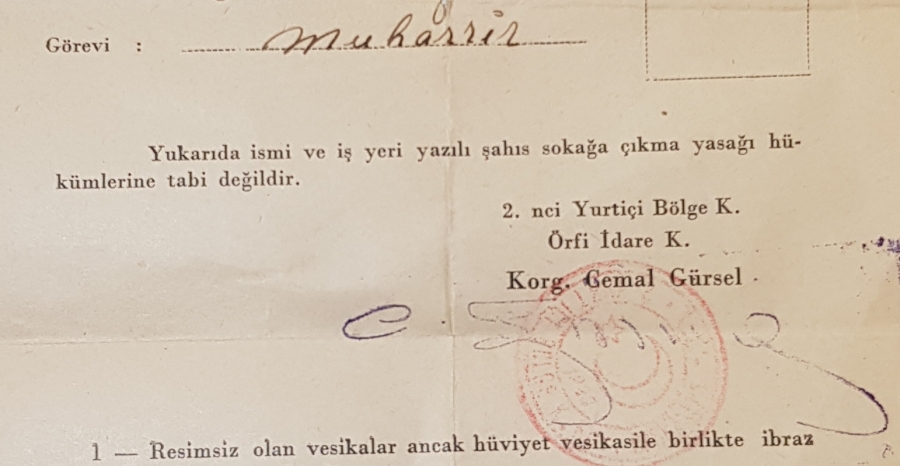 Görevi : Muharrir
Yukarıda ismi ve iş yeri yazılı şahıs sokağa çıkma yasağı hü-
kümlerine tabi değildir.
2. nci Yurtiçi Bölge K.
Örfi İdare K.
Korg. Cemal Gürsel
1 — Resimsiz olan vesikalar ancak hüviyet vesikasile birlikte ibraz